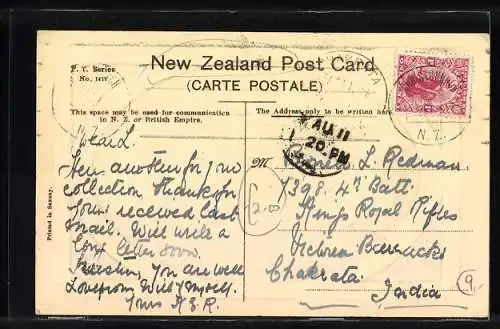 New Zealand Post Card
(CARTE POSTALE)
F. T. Series
No. 1417
This space may be used for communication
in N. Z. or British Empire.
The Address only to be written here
Dear L.
Here another for
collection thanks for
yours received last
mail. Will write a
long letter soon.
Trusting you are well
Love from Will & myself.
Yours A.E.R.
Printed in Saxony.
AU 11
20. PM
N. Z.
N Z
M
L. Redman
7398. 4th Batt.
Kings Royal Rifles
Victoria Barracks
Chakrata.
India
2.0
9